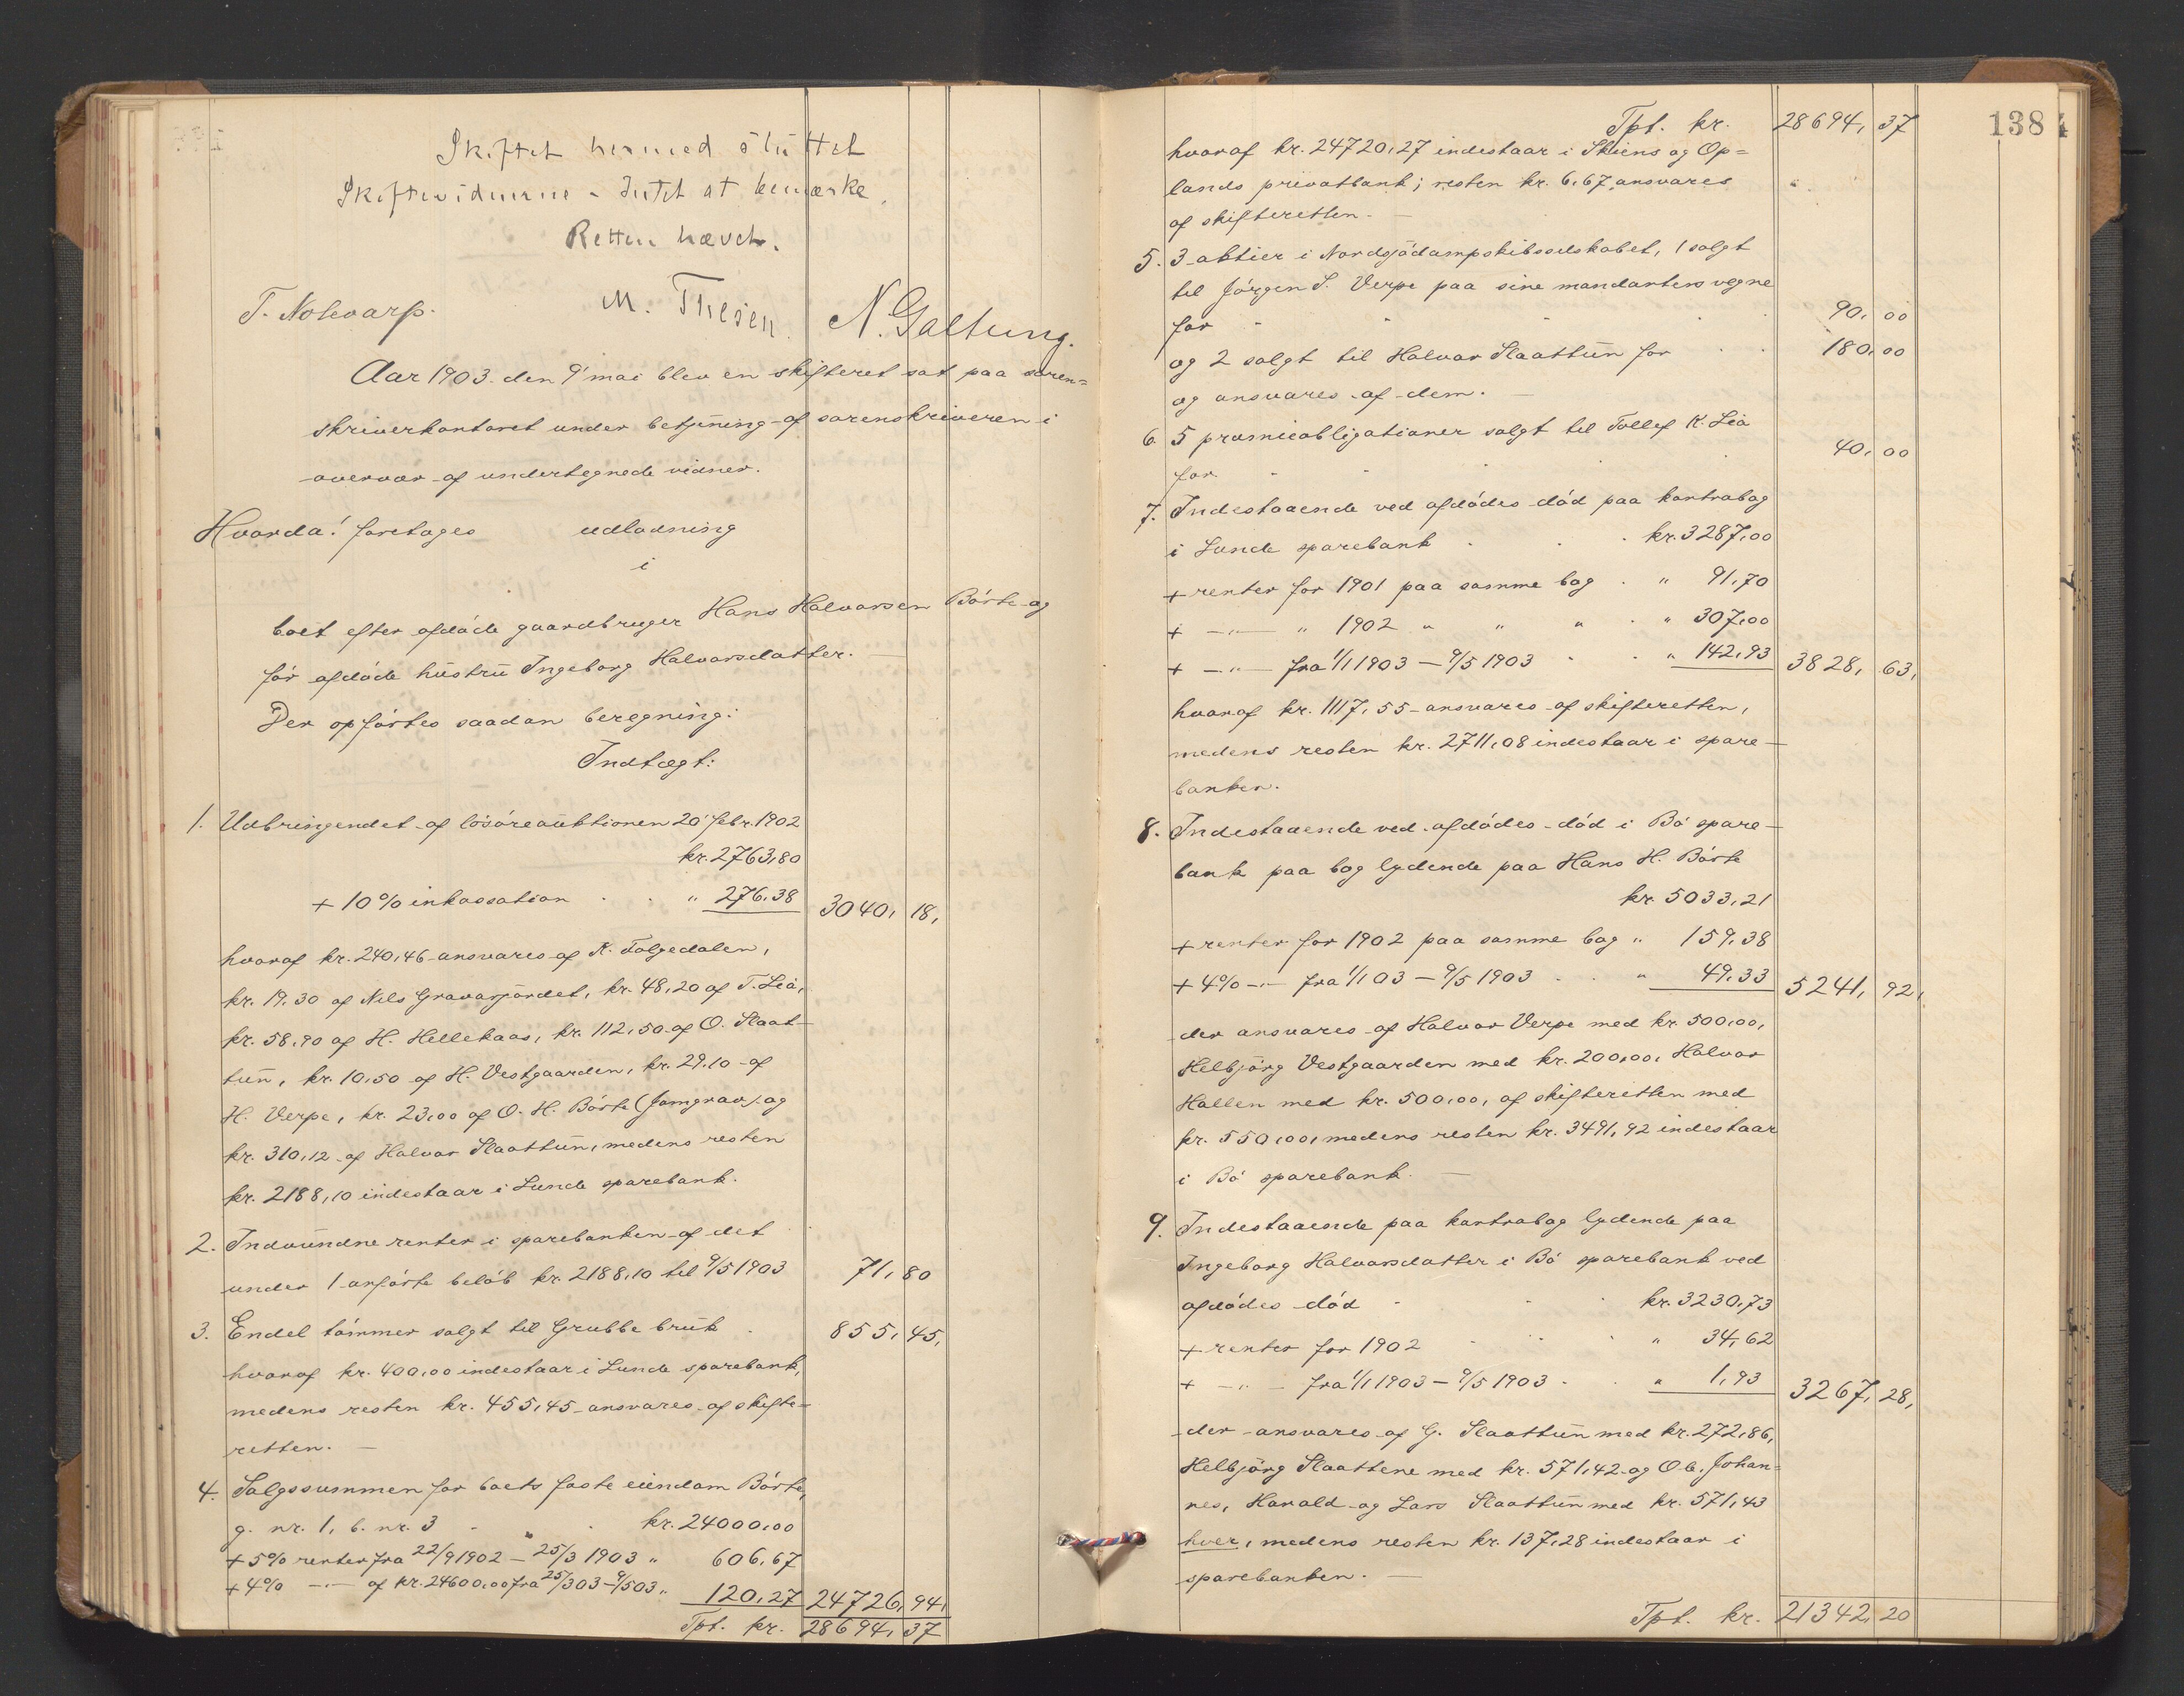 Skiftet hermed sluttet
Skiftevidnerne - Intet at bemærke.
Retten hævet.
T. Notevarp. M. Thesen. N. Galtung.
Aar 1903 den 9' mai blev en skifteret sat paa soren=
skriverkontoret under betjening af sorenskriveren i
overvær af undertegnede vidner.
Hvorda! foretoges udlodning
i
boet efter afdøde gaardbruger Hans Halvorsen Børte og
før afdøde hustru Ingeborg Halvorsdatter.
Der opførtes saadan beregning:
Indtægt:
1. Udbringendet af løsøreauktionen 20' febr. 1902
kr. 2763,80
+ 10% inkassation . . " 276,38 3040, 18,
hvoraf kr. 240,46 ansvares af K. Folgedalen,
kr. 19,30 af Nils Gravarjordet, kr. 48,20 af T. Lia,
kr. 58,90 af H. Hellekaas, kr. 112,50 af O. Slaat-
tun, kr. 10,50 af H. Vestgaarden, kr. 29,10 af
H. Verpe, kr. 23,00 af O. H. Børte (Jamgrav) og
kr. 310,12 af Halvor Slaattun, medens resten
kr. 2188,10 indestaar i Lunde sparebank.
2. Indvundne renter i sparebanken af det
under 1 anførte beløb kr. 2188,10 til 9/5 1903 71, 80
3. Endel tømmer solgt til Grubbe bruk . 855, 45,
hvoraf kr. 400,00 indestaar i Lunde sparebank,
medens resten kr. 455,45 ansvares af skifte=
retten. —
4. Salgssummen for boets faste eiendom Børte,
g. nr. 1, b. nr. 3 . " . kr. 24000,00
+ 5% renter fra 22/9 1902 - 25/3 1903 " 606,67
+ 4% -"- af kr. 24600,00 fra 25/3 03 - 9/5 03 " 120,27 24726, 94,
Tpt. kr. 28694, 37
138
Tpt. kr. 28694, 37
hvoraf kr. 24720,27 indestaar i Skiens og Op=
lands privatbank; resten kr. 6,67 ansvares
af skifteretten. —
5. 3 aktier i Nordsjødampskibsselskabet, 1 solgt
til Jørgen S. Verpe paa sine mandanters vegne
for " " . 90, 00
og 2 solgt til Halvor Slaattun for . . 180, 00
og ansvares af dem. —
6. 5 præmieobligationer solgt til Tollef K. Lia
for. " " " . 40, 00
7. Indestaaende ved afdødes død paa kontrabog
i Lunde sparebank . . . kr. 3287,00
+ renter for 1901 paa samme bog . " 91,70
+ -"- " 1902 " " " . " 307,00
+ -"- fra 1/1 1903 - 9/5 1903 . . " 142,93 3828, 63,
hvoraf kr. 1117,55 ansvares af skifteretten,
medens resten kr. 2711,08 indestaar i spare-
banken.
8. Indestaaende ved afdødes død i Bø spare-
bank paa bog lydende paa Hans H. Børte
kr. 5033,21
+ renter for 1902 paa samme bog " 159,38
+ 4% -"- fra 1/1 03 - 9/5 1903 . . " 49,33 5241, 92,
der ansvares af Halvor Verpe med kr. 500,00,
Helbjörg Vestgaarden med kr. 200,00, Halvor
Hallen med kr. 500,00, af skifteretten med
kr. 550,00, medens resten kr. 3491,92 indestaar
i Bø sparebank. —
9. Indestaaende paa kontrabog lydende paa
Ingeborg Halvorsdatter i Bø sparebank ved
afdødes død . . . kr. 3230,73
+ renter for 1902 . . . " 34,62
+ -"- fra 1/1 1903 - 9/5 1903 . . " 1,93 3267, 28,
der ansvares af G. Slaattun med kr. 272,86,
Helbjörg Slaattene med kr. 571,42 og Ole, Johan=
nes, Harald og Lars Slaattun med kr. 571,43
hver, medens resten kr. 137,28 indestaar i
sparebanken. —
Tpt. kr. 21342, 20